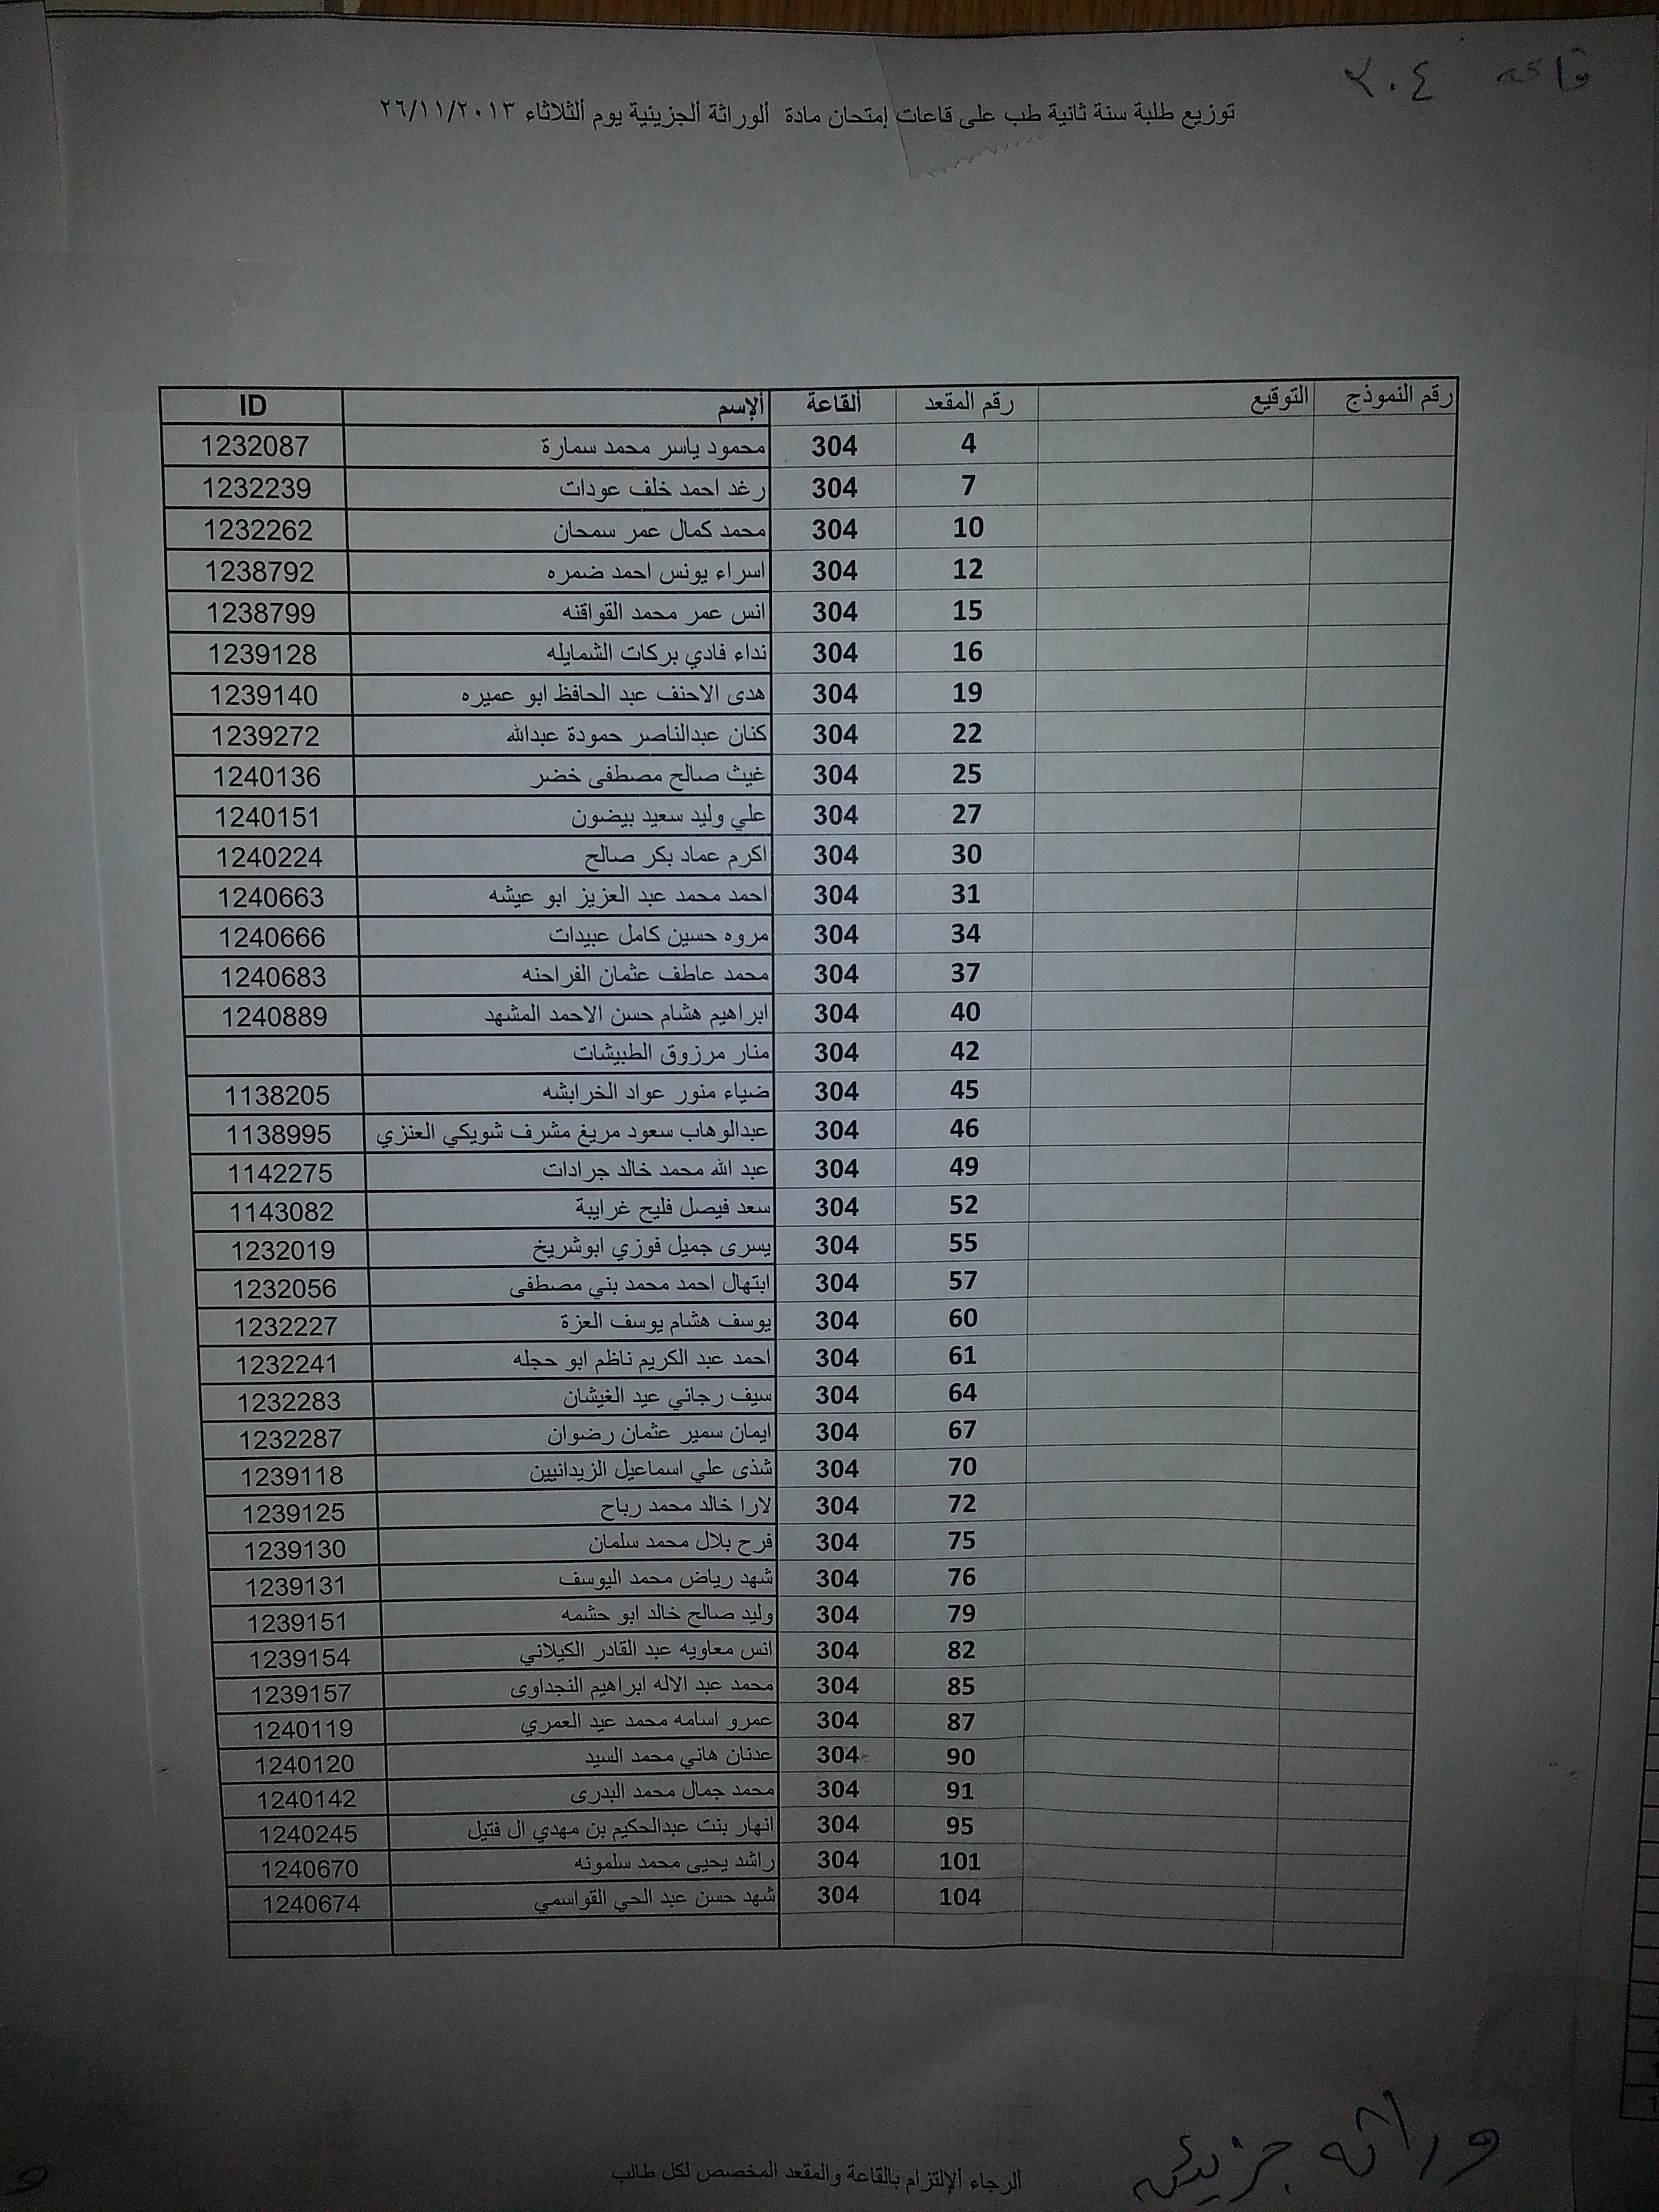 قاعه ٣٠٤
توزيع طلبة سنة ثانية طب على قاعات إمتحان مادة ألوراثة ألجزيئية يوم ألثلاثاء ٢٦/١١/٢٠١٣
ID ألإسم ألقاعة رقم المقعد التوقيع رقم النموذج
1232087 محمود ياسر محمد سمارة 304 4
1232239 رغد احمد خلف عودات 304 7
1232262 محمد كمال عمر سمحان 304 10
1238792 اسراء يونس احمد ضمره 304 12
1238799 انس عمر محمد القواقنه 304 15
1239128 نداء فادي بركات الشمايله 304 16
1239140 هدى الاحنف عبد الحافظ ابو عميره 304 19
1239272 كنان عبدالناصر حمودة عبدالله 304 22
1240136 غيث صالح مصطفى خضر 304 25
1240151 علي وليد سعيد بيضون 304 27
1240224 اكرم عماد بكر صالح 304 30
1240663 احمد محمد عبد العزيز ابو عيشه 304 31
1240666 مروه حسين كامل عبيدات 304 34
1240683 محمد عاطف عثمان الفراحنه 304 37
1240889 ابراهيم هشام حسن الاحمد المشهد 304 40
منار مرزوق الطبيشات 304 42
1138205 ضياء منور عواد الخرابشه 304 45
1138995 عبدالوهاب سعود مريغ مشرف شويكي العنزي 304 46
1142275 عبد الله محمد خالد جرادات 304 49
1143082 سعد فيصل فليح غرايبة 304 52
1232019 يسرى جميل فوزي ابوشريخ 304 55
1232056 ابتهال احمد محمد بني مصطفى 304 57
1232227 يوسف هشام يوسف العزة 304 60
1232241 احمد عبد الكريم ناظم ابو حجله 304 61
1232283 سيف رجائي عيد الغيشان 304 64
1232287 ايمان سمير عثمان رضوان 304 67
1239118 شذى علي اسماعيل الزيدانيين 304 70
1239125 لارا خالد محمد رباح 304 72
1239130 فرح بلال محمد سلمان 304 75
1239131 شهد رياض محمد اليوسف 304 76
1239151 وليد صالح خالد ابو حشمه 304 79
1239154 انس معاويه عبد القادر الكيلاني 304 82
1239157 محمد عبد الاله ابراهيم النجداوى 304 85
1240119 عمرو اسامه محمد عيد العمري 304 87
1240120 عدنان هاني محمد السيد 304 90
1240142 محمد جمال محمد البدرى 304 91
1240245 انهار بنت عبدالحكيم بن مهدي ال فتيل 304 95
1240670 راشد يحيى محمد سلمونه 304 101
1240674 شهد حسن عبد الحي القواسمي 304 104
وراثه جزيئيه
ألرجاء ألإلتزام بالقاعة والمقعد المخصص لكل طالب